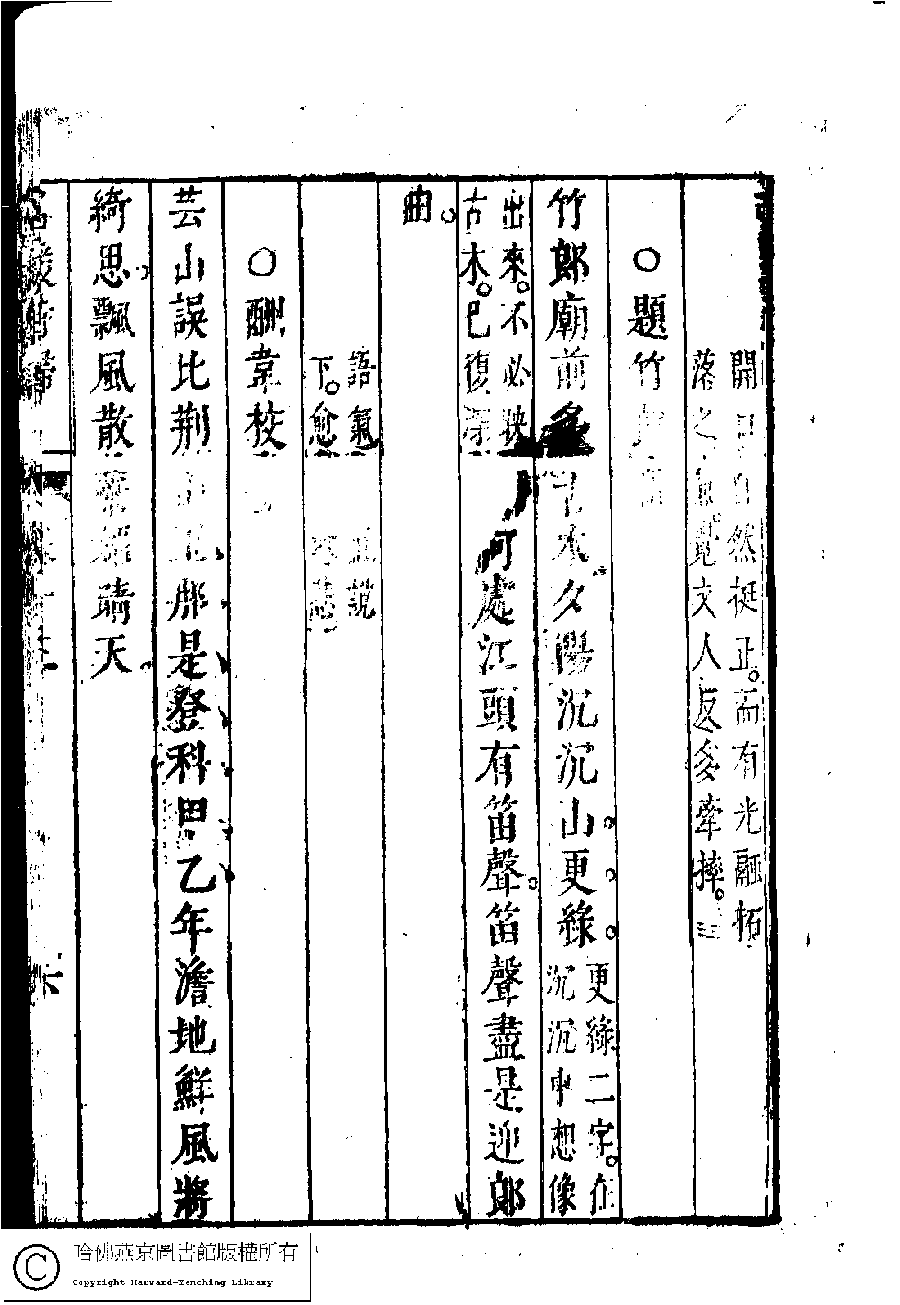 開口自然挺正。而有光融拓
落之氣。覺文人反多牽摔。
○題竹郎廟
竹郎廟前多古木夕陽沉沉山更綠
更綠二字。在
沉沉中想像
出來。不必映
古木。已復深
何處江頭有笛聲笛聲盡是迎郎
曲。
語氣直說
下。愈
○酬韋校
芸山誤比荆山玉那是登科甲乙年澹地鮮風將
綺思飄風散葉媚晴天
哈佛燕京圖書館版權所有
Copyright Harvard-Yenching Library